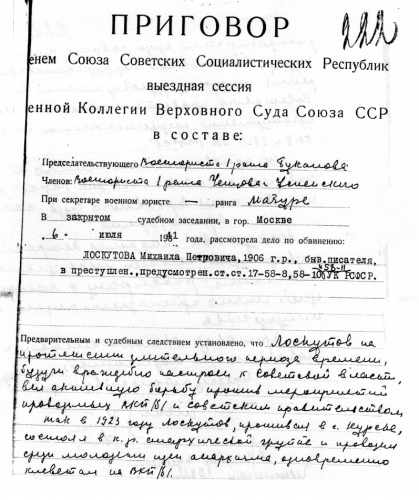 ПРИГОВОР
222
енем Союза Советских Социалистических Республик
выездная сессия
енной Коллегии Верховного Суда Союза ССР
в составе:
Председательствующего Военюриста 1 ранга Буканова
Членов: Военюриста 1 ранга Чепцова и Успенского
При секретаре военном юристе — ранга Мазуре
В закрытом судебном заседании, в гор. Москве
6 июля 1941 года, рассмотрела дело по обвинению:
ЛОСКУТОВА Михаила Петровича, 1906 г.р., быв.писателя,
в преступлен., предусмотрен. ст.ст. 17-58-8, 58-10 и 58-11 УК РСФСР.
Предварительным и судебным следствием установлено, что Лоскутов на
протяжении длительного периода времени,
будучи враждебно настроен к советской власти,
вел активную борьбу против мероприятий
проводимых ВКП/б/ и советским правительством
так в 1923 году Лоскутов, проживая в г. Курске,
состоял в к.р. анархической группе и проводил
среди молодежи идеи анархизма, одновременно
клеветал на ВКП/б/.